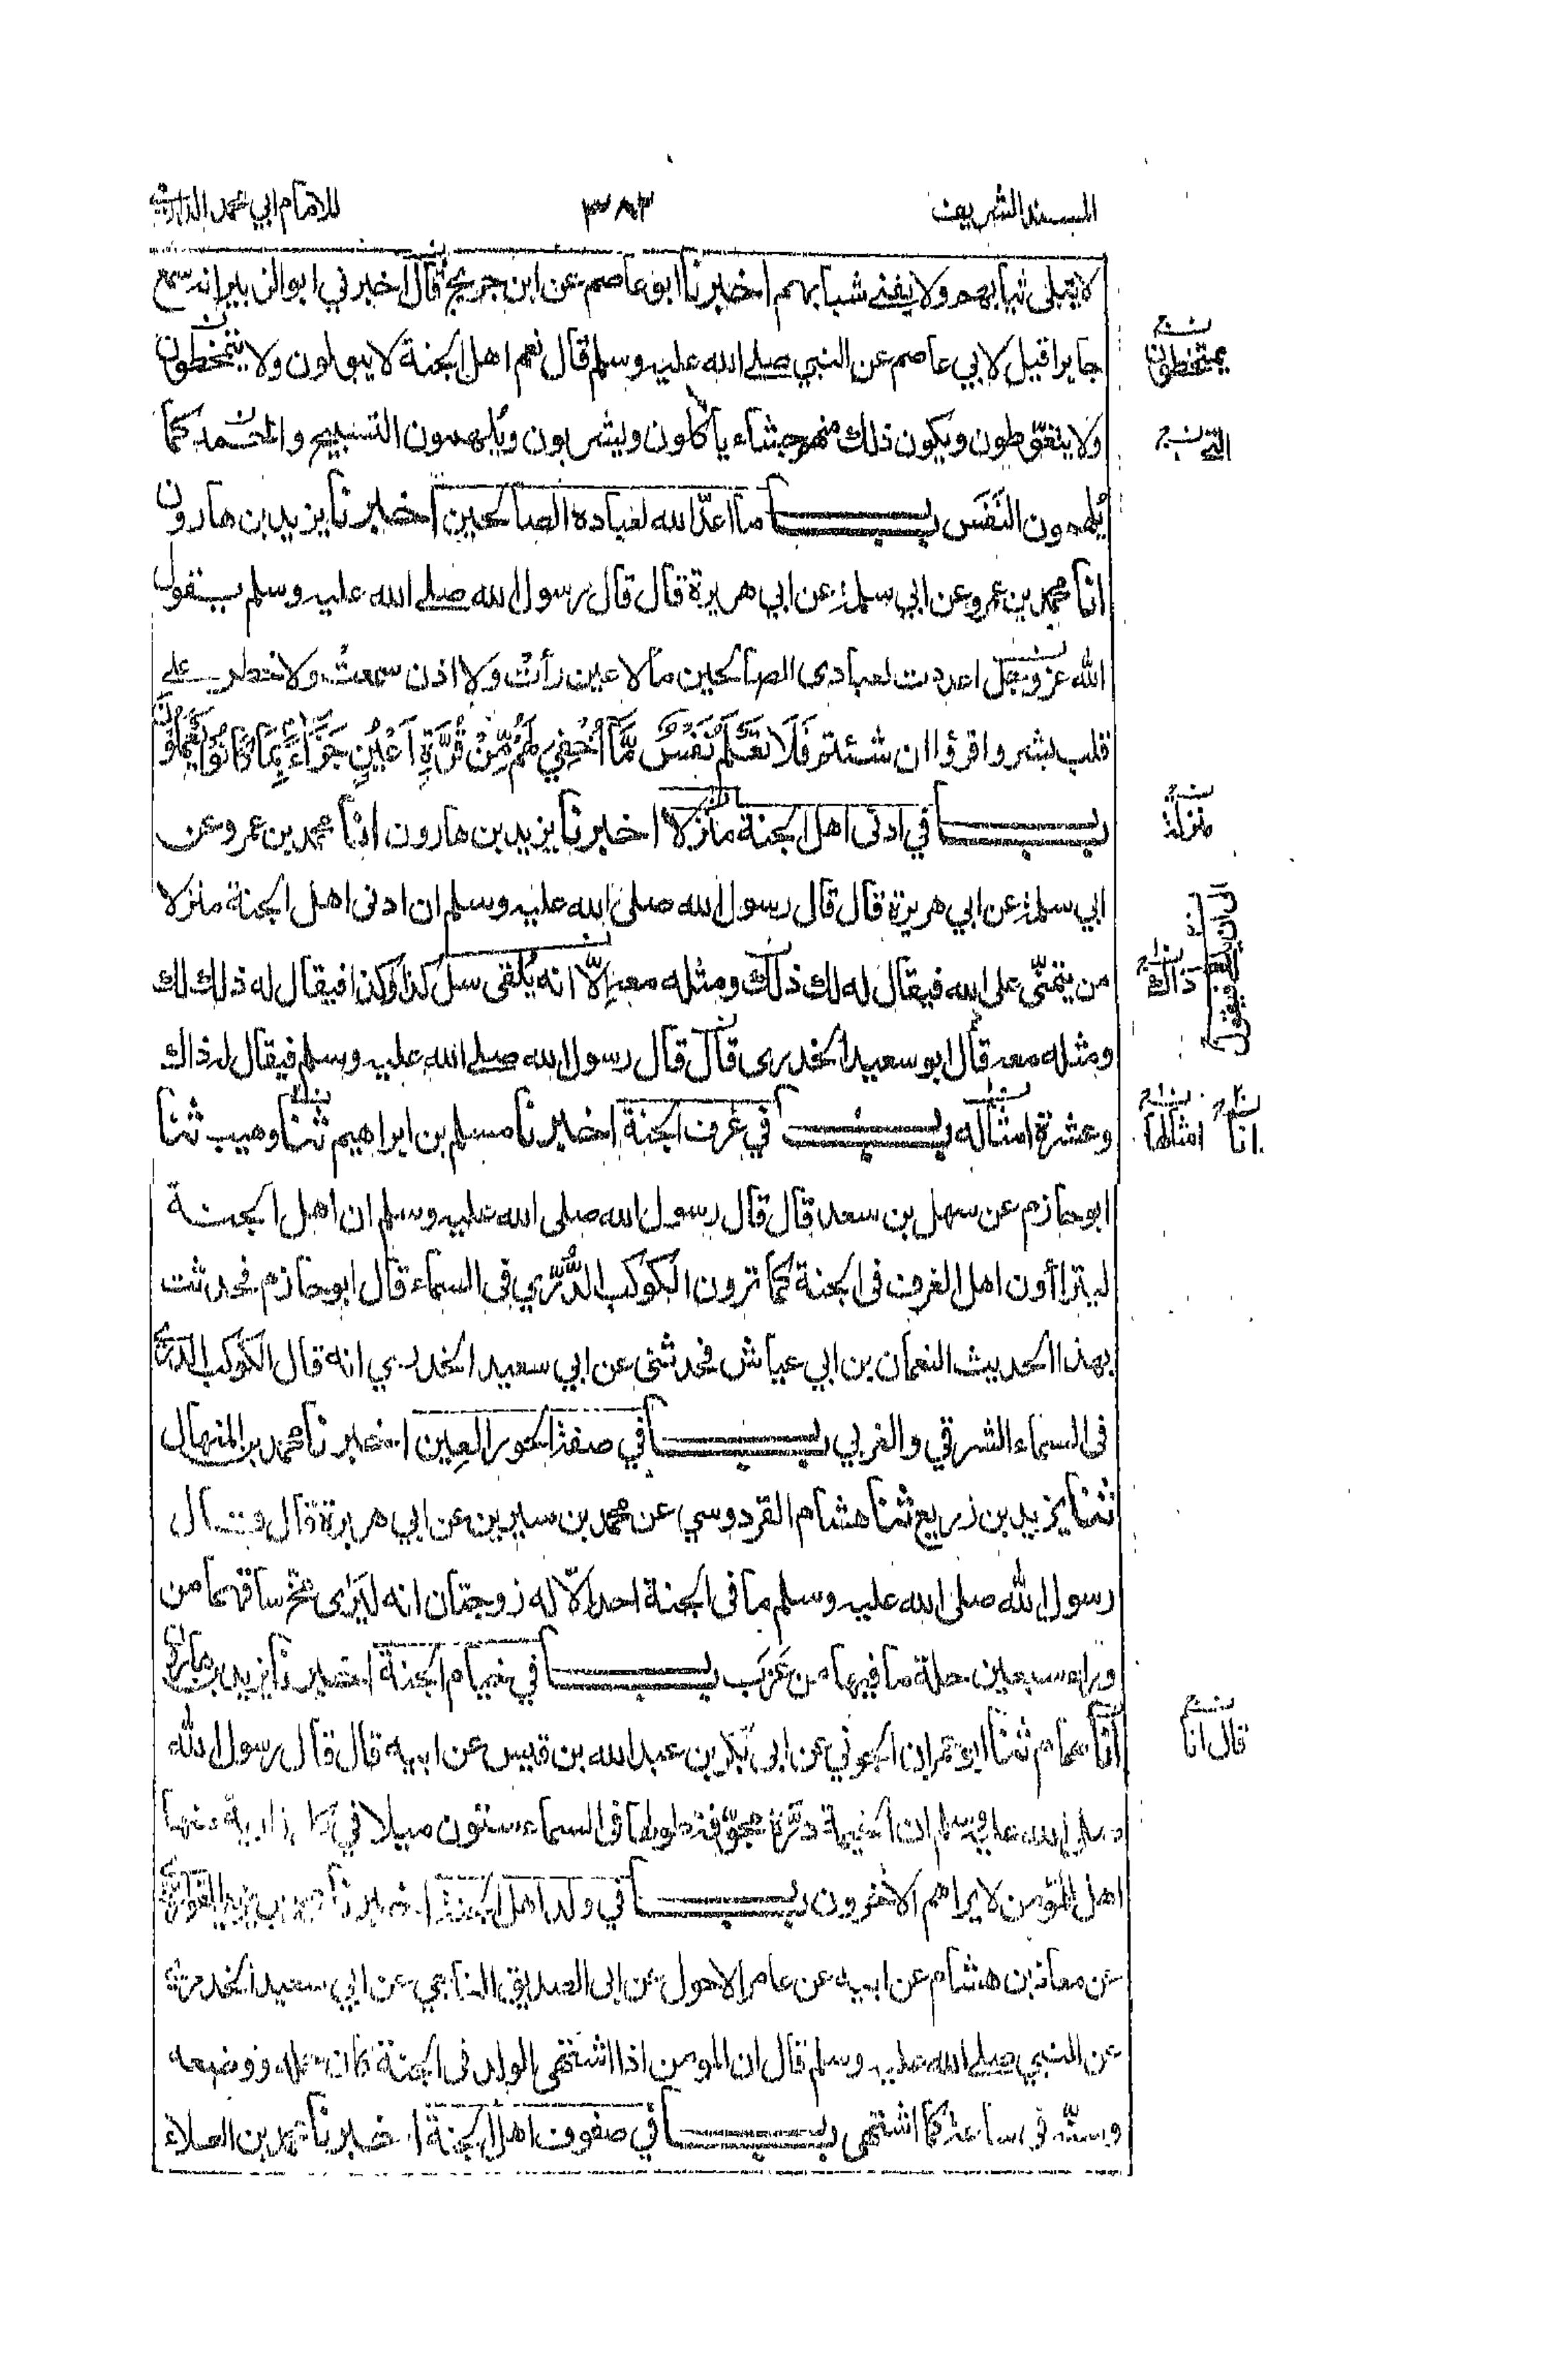 المسند الشريف ٣٨٣ للامام ابي محمد الدارمي
لا تبلى ثيابهم ولا يفنى شبابهم اخبرنا ابو عاصم عن ابن جريج قال اخبرني ابو الزبير انه سمع
جابرا قيل لابي عاصم عن النبي صلى الله عليه وسلم قال نعم اهل الجنة لا يبولون ولا يتمخطون
ولا يتغوّطون ويكون ذلك منهم جشاء ياكلون ويشربون ويُلهمون التسبيح والحمد كما
يُلهمون النَّفَس باب ما اعدّ الله لعباده الصالحين اخبرنا يزيد بن هارون
انا محمد بن عمرو عن ابي سلمة عن ابي هريرة قال قال رسول الله صلى الله عليه وسلم يقول
الله عز وجل اعددت لعبادى الصالحين ما لا عين رأت ولا اذن سمعت ولا خطر على
قلب بشر واقرؤا ان شئتم فَلَا تَعْلَمُ نَفْسٌ مَّا أُخْفِيَ لَهُمْ مِّنْ قُرَّةِ اَعْيُنٍ جَزَاءً بِمَا كَانُوْا يَعْمَلُوْنَ
باب في ادنى اهل الجنة منزلا اخبرنا يزيد بن هارون انا محمد بن عمرو عن
ابي سلمة عن ابي هريرة قال قال رسول الله صلى الله عليه وسلم ان ادنى اهل الجنة منزلا
من يتمنّى على الله فيقال له لك ذلك ومثله معه اِلّا انه يُلقى سل كذا وكذا فيقال له ذلك لك
ومثله معه قال ابو سعيد الخدرى قال قال رسول الله صلى الله عليه وسلم فيقال له ذاك
وعشرة امثاله باب في غرف الجنة اخبرنا مسلم بن ابراهيم ثنا وهيب ثنا
ابو حازم عن سهل بن سعد قال قال رسول الله صلى الله عليه وسلم ان اهل الجنة
ليتراأون اهل الغرف فى الجنة كما ترون الكوكب الدُّرّي فى السماء قال ابو حازم فحدثت
بهذا الحديث النعمان بن ابي عياش فحدثنى عن ابي سعيد الخدري انه قال الكوكب الدري
فى السماء الشرقي والغربي باب في صفة الحور العِين اخبرنا محمد بن المنهال
ثنا يزيد بن زريع ثنا هشام القردوسي عن محمد بن سيرين عن ابي هريرة قال قال
رسول الله صلى الله عليه وسلم ما فى الجنة احد الّا له زوجتان انه ليَرٰى مخ ساقهما من
وراء سبعين حلة ما فيها من عَزَب باب في خيام الجنة اخبرنا يزيد بن هارون
انا همام ثنا ابو عمران الجوني عن ابى بكر بن عبد الله بن قيس عن ابيه قال قال رسول الله
صلى الله عليه وسلم ان الخيمة درّة مجوّفة طولها فى السماء ستون ميلا في كل زاوية منها
اهل المؤمن لا يراهم الاخرون باب في ولد اهل الجنة اخبرنا
عن معاذ بن هشام عن ابيه عن عامر الاحول عن ابى الصديق الناجي عن ابي سعيد الخدري
عن النبي صلى الله عليه وسلم قال ان المومن اذا اشتهى الولد فى الجنة كان حمله ووضعه
وسنّه فى ساعة كما اشتهى باب في صفوف اهل الجنة اخبرنا محمد بن العلاء
يمتخطون
منزلة
ذاك
انا امثالها
قال انا